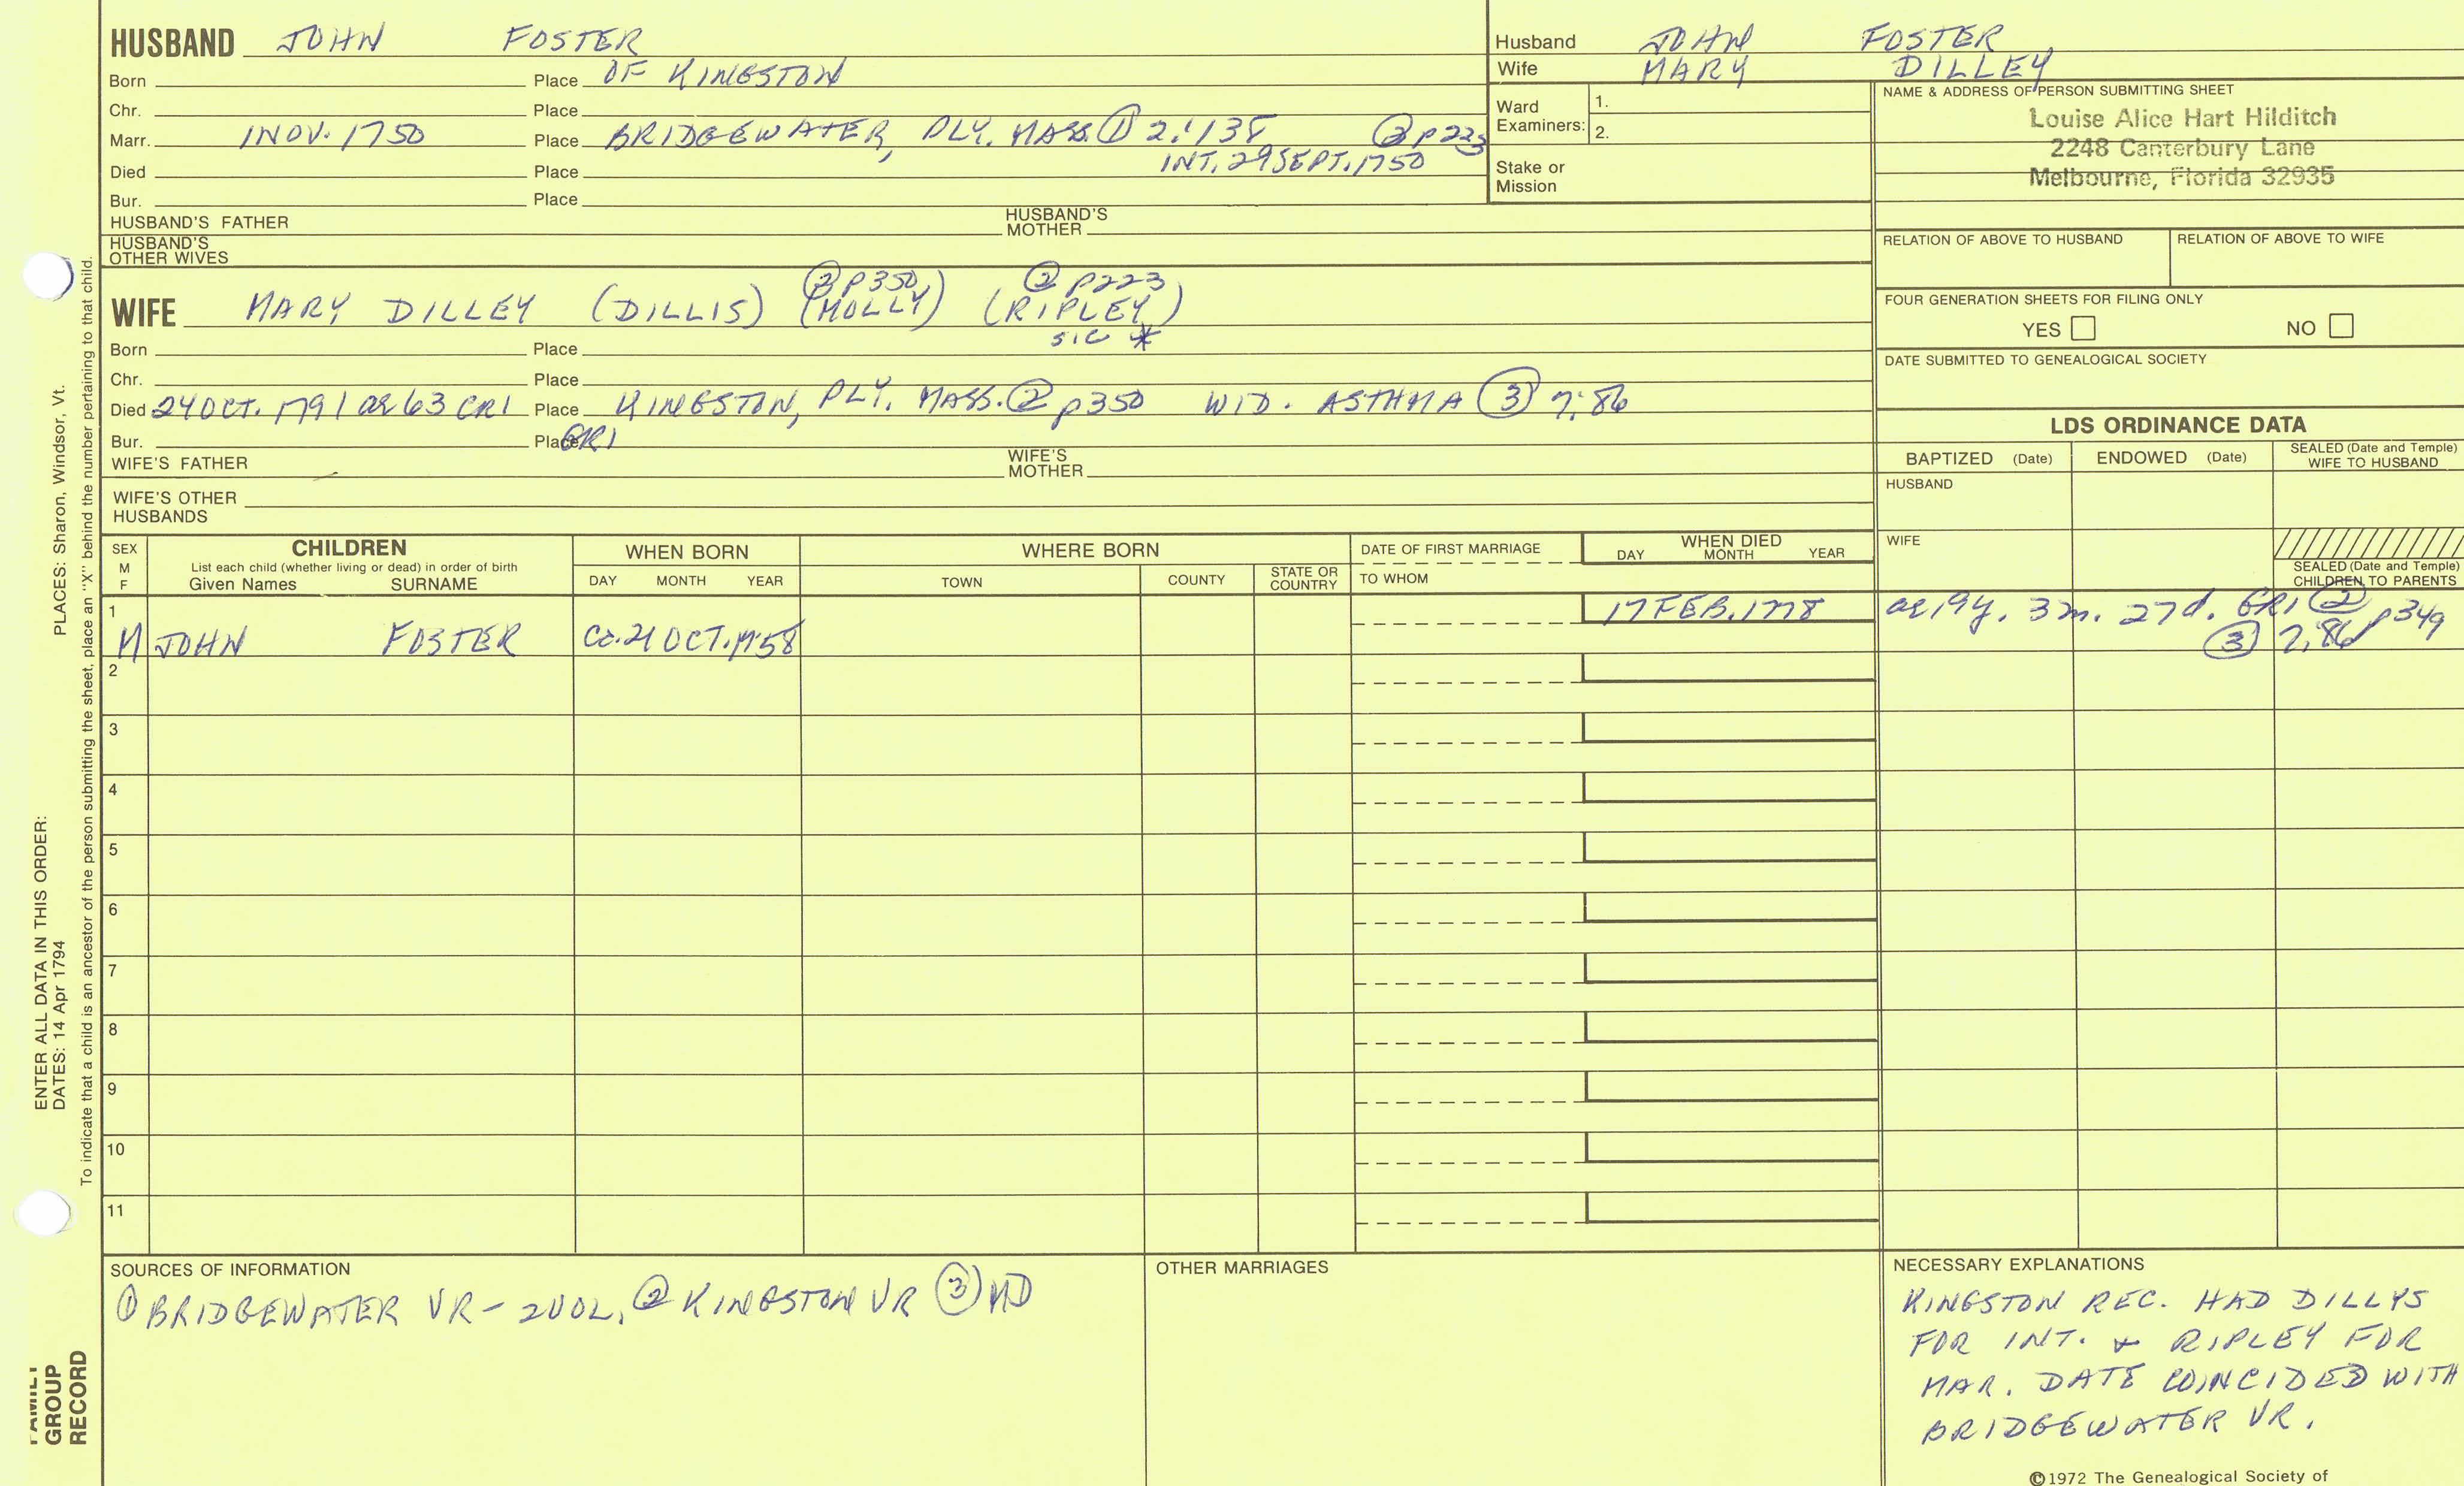 HUSBAND JOHN FOSTER
Born Place OF KINGSTON
Chr. Place
Marr. 1 NOV. 1750 Place BRIDGEWATER, PLY. MASS. ① 2:138 ② p223
INT. 29 SEPT. 1750
Died Place
Bur. Place
HUSBAND'S FATHER HUSBAND'S MOTHER
HUSBAND'S OTHER WIVES
Husband JOHN FOSTER
Wife MARY DILLEY
Ward Examiners: 1.
2.
Stake or Mission
NAME & ADDRESS OF PERSON SUBMITTING SHEET
Louise Alice Hart Hilditch
2248 Canterbury Lane
Melbourne, Florida 32935
RELATION OF ABOVE TO HUSBAND RELATION OF ABOVE TO WIFE
FOUR GENERATION SHEETS FOR FILING ONLY
YES NO
DATE SUBMITTED TO GENEALOGICAL SOCIETY
② p350 ② p223
WIFE MARY DILLEY (DILLIS) (MOLLY) (RIPLEY)
SIC *
Born Place
Chr. Place
Died 24 OCT. 1791 ae 63 CR1 Place KINGSTON, PLY. MASS. ② p350 WID. ASTHMA ③ 7:86
Bur. Place GR1
WIFE'S FATHER WIFE'S MOTHER
WIFE'S OTHER HUSBANDS
LDS ORDINANCE DATA
BAPTIZED (Date) ENDOWED (Date) SEALED (Date and Temple) WIFE TO HUSBAND
HUSBAND
WIFE
SEALED (Date and Temple) CHILDREN TO PARENTS
SEX M F
CHILDREN
List each child (whether living or dead) in order of birth
Given Names SURNAME
WHEN BORN
DAY MONTH YEAR
WHERE BORN
TOWN COUNTY STATE OR COUNTRY
DATE OF FIRST MARRIAGE
TO WHOM
WHEN DIED
DAY MONTH YEAR
1 17 FEB. 1778 ae 19y. 3m. 27d. GR1 ② p349
M JOHN FOSTER Ca. 21 OCT. 1758 ③ 7:86
2
3
4
5
6
7
8
9
10
11
SOURCES OF INFORMATION
① BRIDGEWATER VR - 2 VOL. ② KINGSTON VR ③ MD
OTHER MARRIAGES
NECESSARY EXPLANATIONS
KINGSTON REC. HAD DILLYS
FOR INT. & RIPLEY FOR
MAR. DATE COINCIDED WITH
BRIDGEWATER VR.
©1972 The Genealogical Society of
ENTER ALL DATA IN THIS ORDER:
DATES: 14 Apr 1794
PLACES: Sharon, Windsor, Vt.
To indicate that a child is an ancestor of the person submitting the sheet, place an "X" behind the number pertaining to that child.
FAMILY
GROUP
RECORD